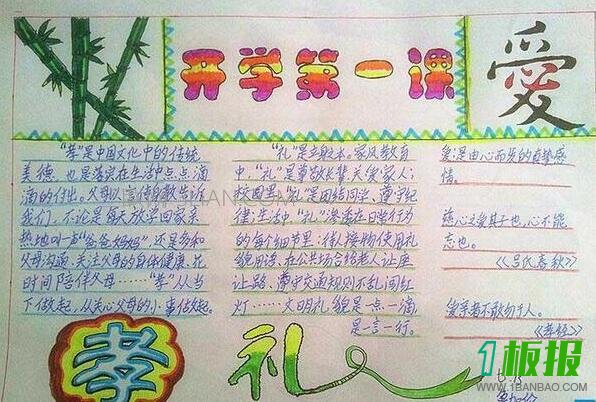 开学第一课
愛
“孝”是中国文化中的传统
美德,也是落实在生活中点点滴
滴的付出。父母以言传身教告诉
我们,不论是每天放学回家亲
热地叫一声“爸爸妈妈”,还是多和
父母沟通,关注父母的身体健康,花
时间陪伴父母……“孝”从当
下做起,从关心父母的小事做起。
孝
“礼”是立身之本。家风教育
中,“礼”是尊敬长辈关爱家人;
校园里,“礼”是团结同学、遵守纪
律;生活中,“礼”渗透在日常行为
的每个细节里:待人接物使用礼
貌用语、在公共场合给老人让座
让路、遵守交通规则不乱闯红
灯……文明礼貌是一点一滴,
是一言一行。
礼
爱:是由心而发的真挚感
情。
慈亲之爱其子也,心不能
忘也。
《吕氏春秋》
爱亲者不敢勿于人。
《孝经》
1板报
WWW.1BANBAO.COM